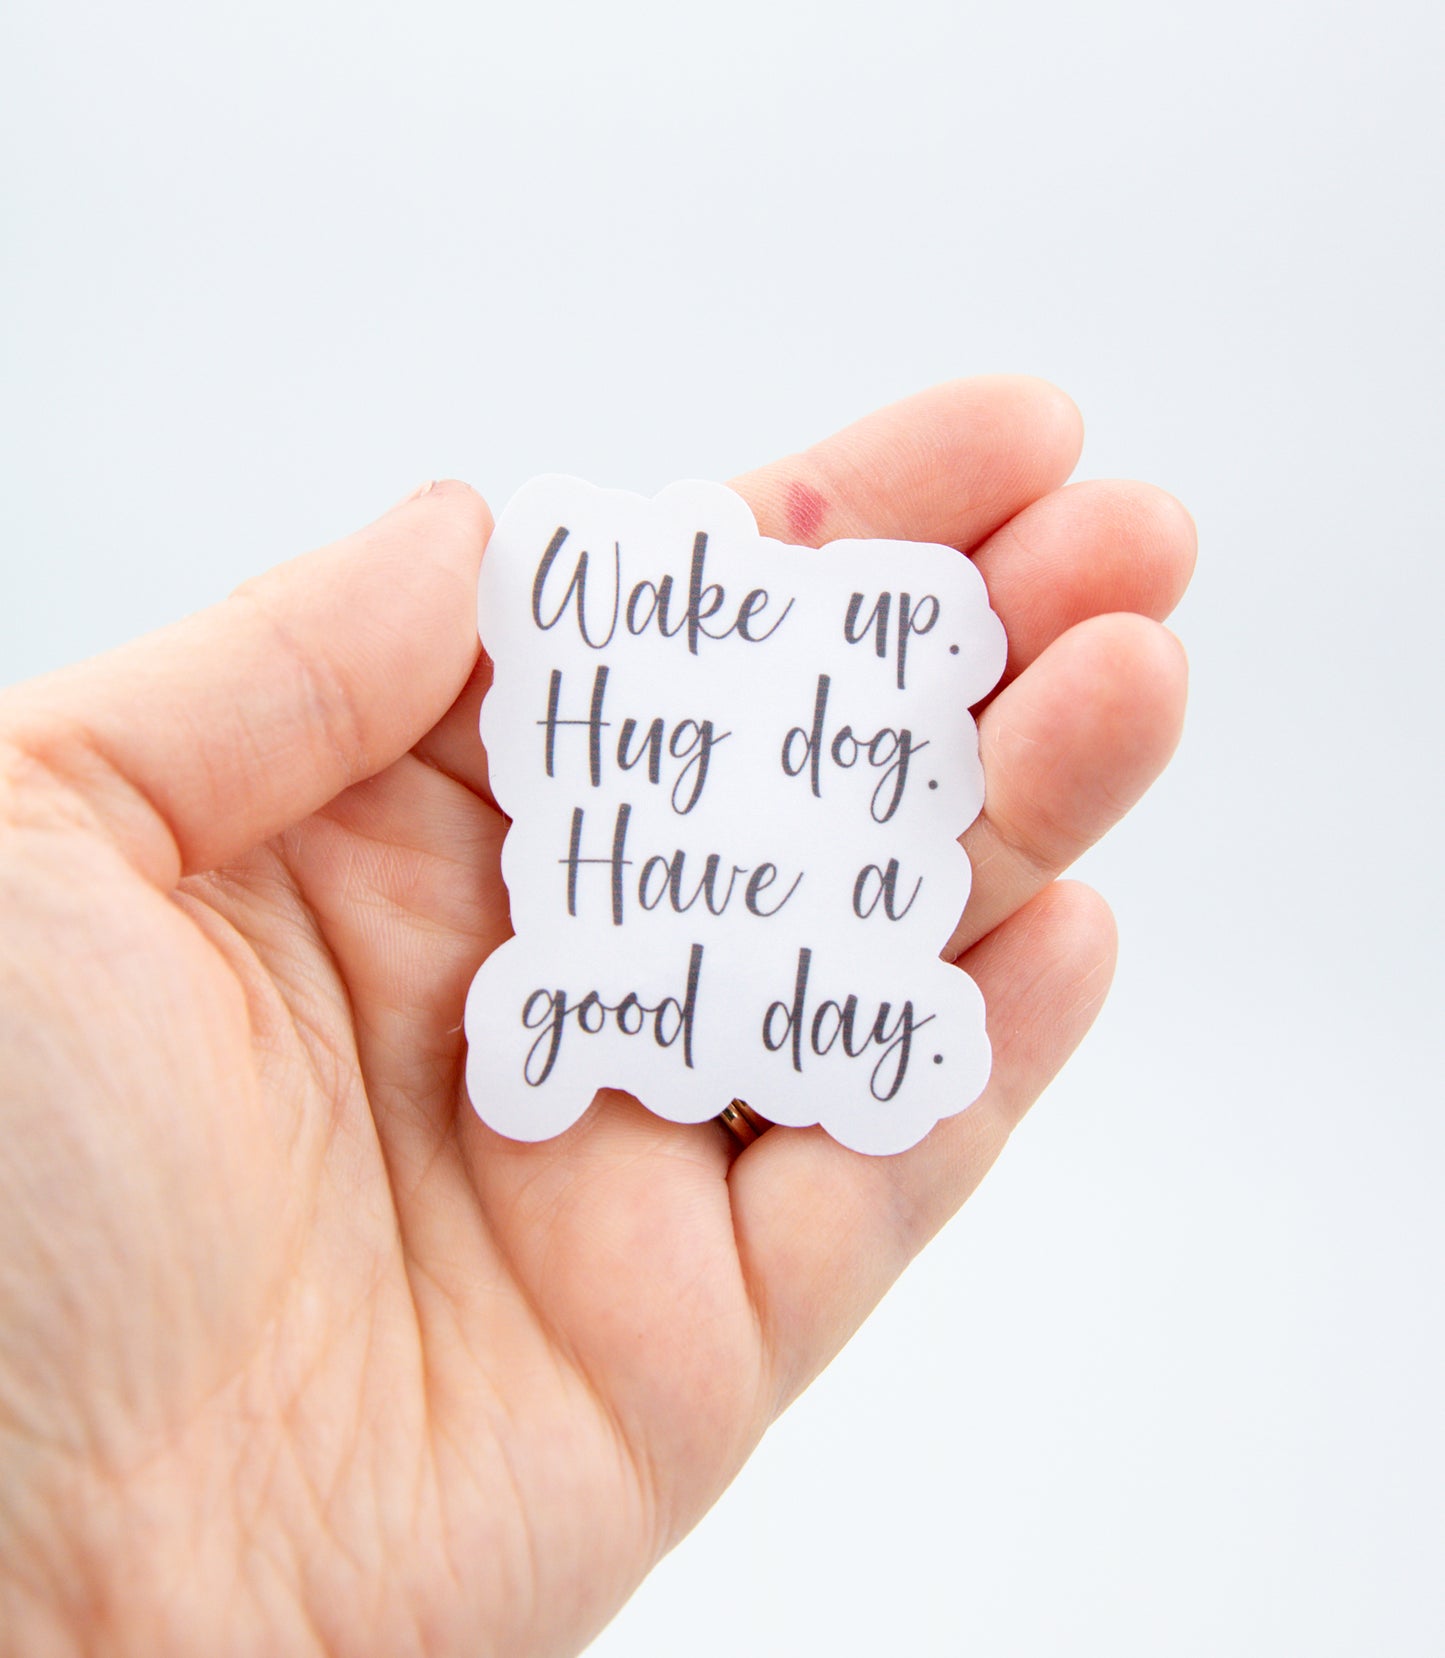 Wake up.
Hug dog.
Have a
good day.